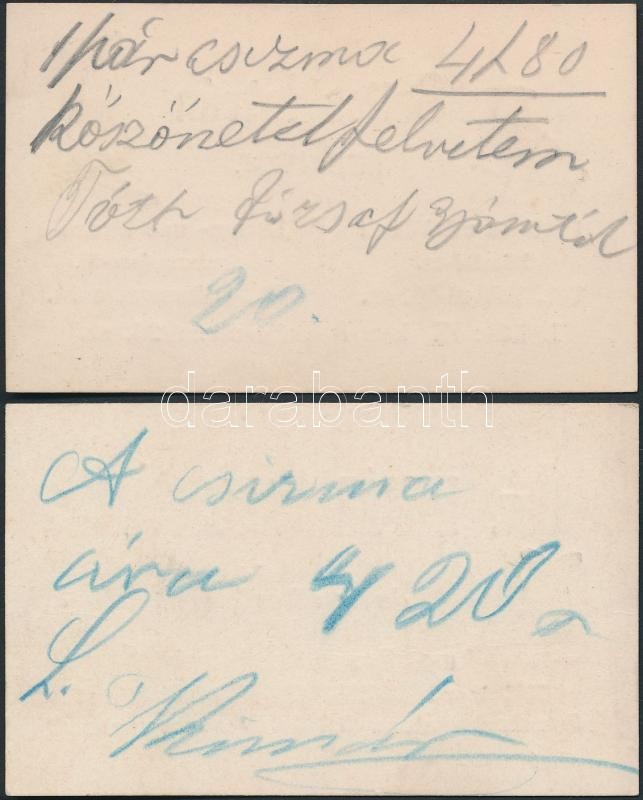 1 pár csizma 4/80
köszönetel felvetem
Tóth József
20.
darabanth
A csizma
ára 4 20
L.